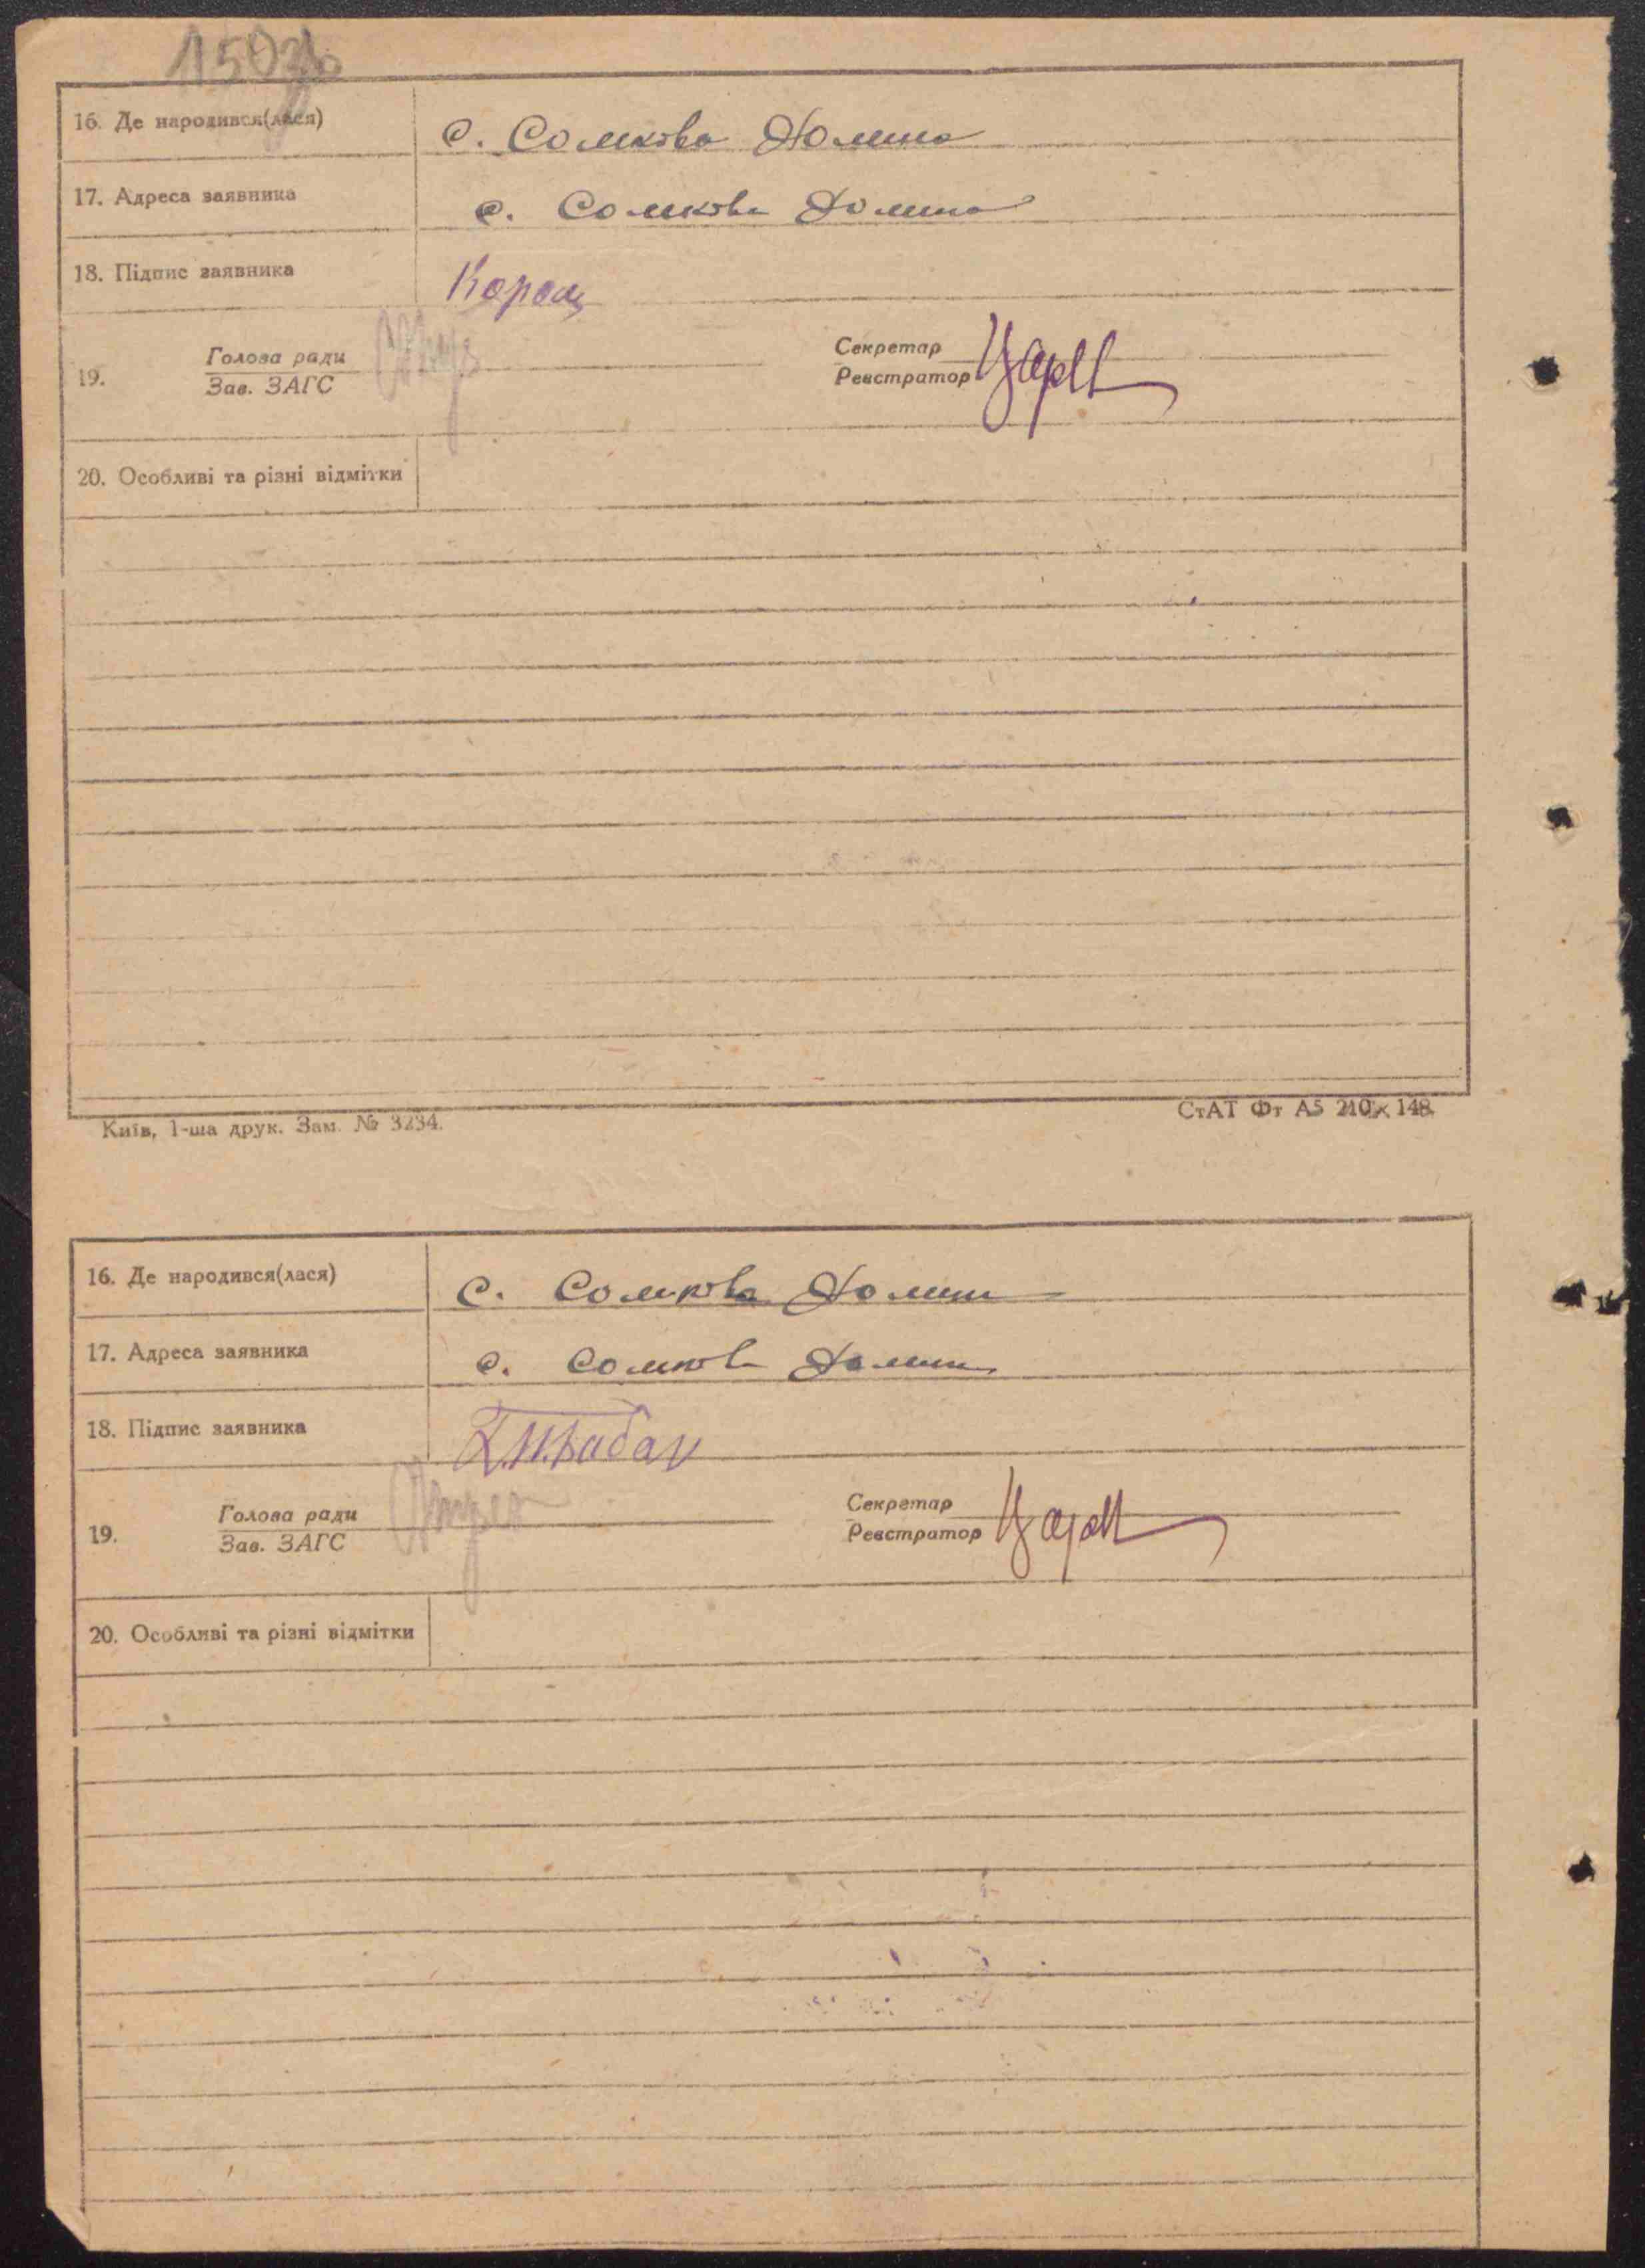 16. Де народився(лася) с. Сомкова Долина
17. Адреса заявника с. Сомкова Долина
18. Підпис заявника
19. Голова ради
Зав. ЗАГС
Секретар
Реєстратор
20. Особливі та різні відмітки
Київ, 1-ша друк. Зам. № 3234.
СтАТ Фт А5 210×148
16. Де народився(лася) с. Сомкова Долина
17. Адреса заявника с. Сомкова Долина
18. Підпис заявника
19. Голова ради
Зав. ЗАГС
Секретар
Реєстратор
20. Особливі та різні відмітки